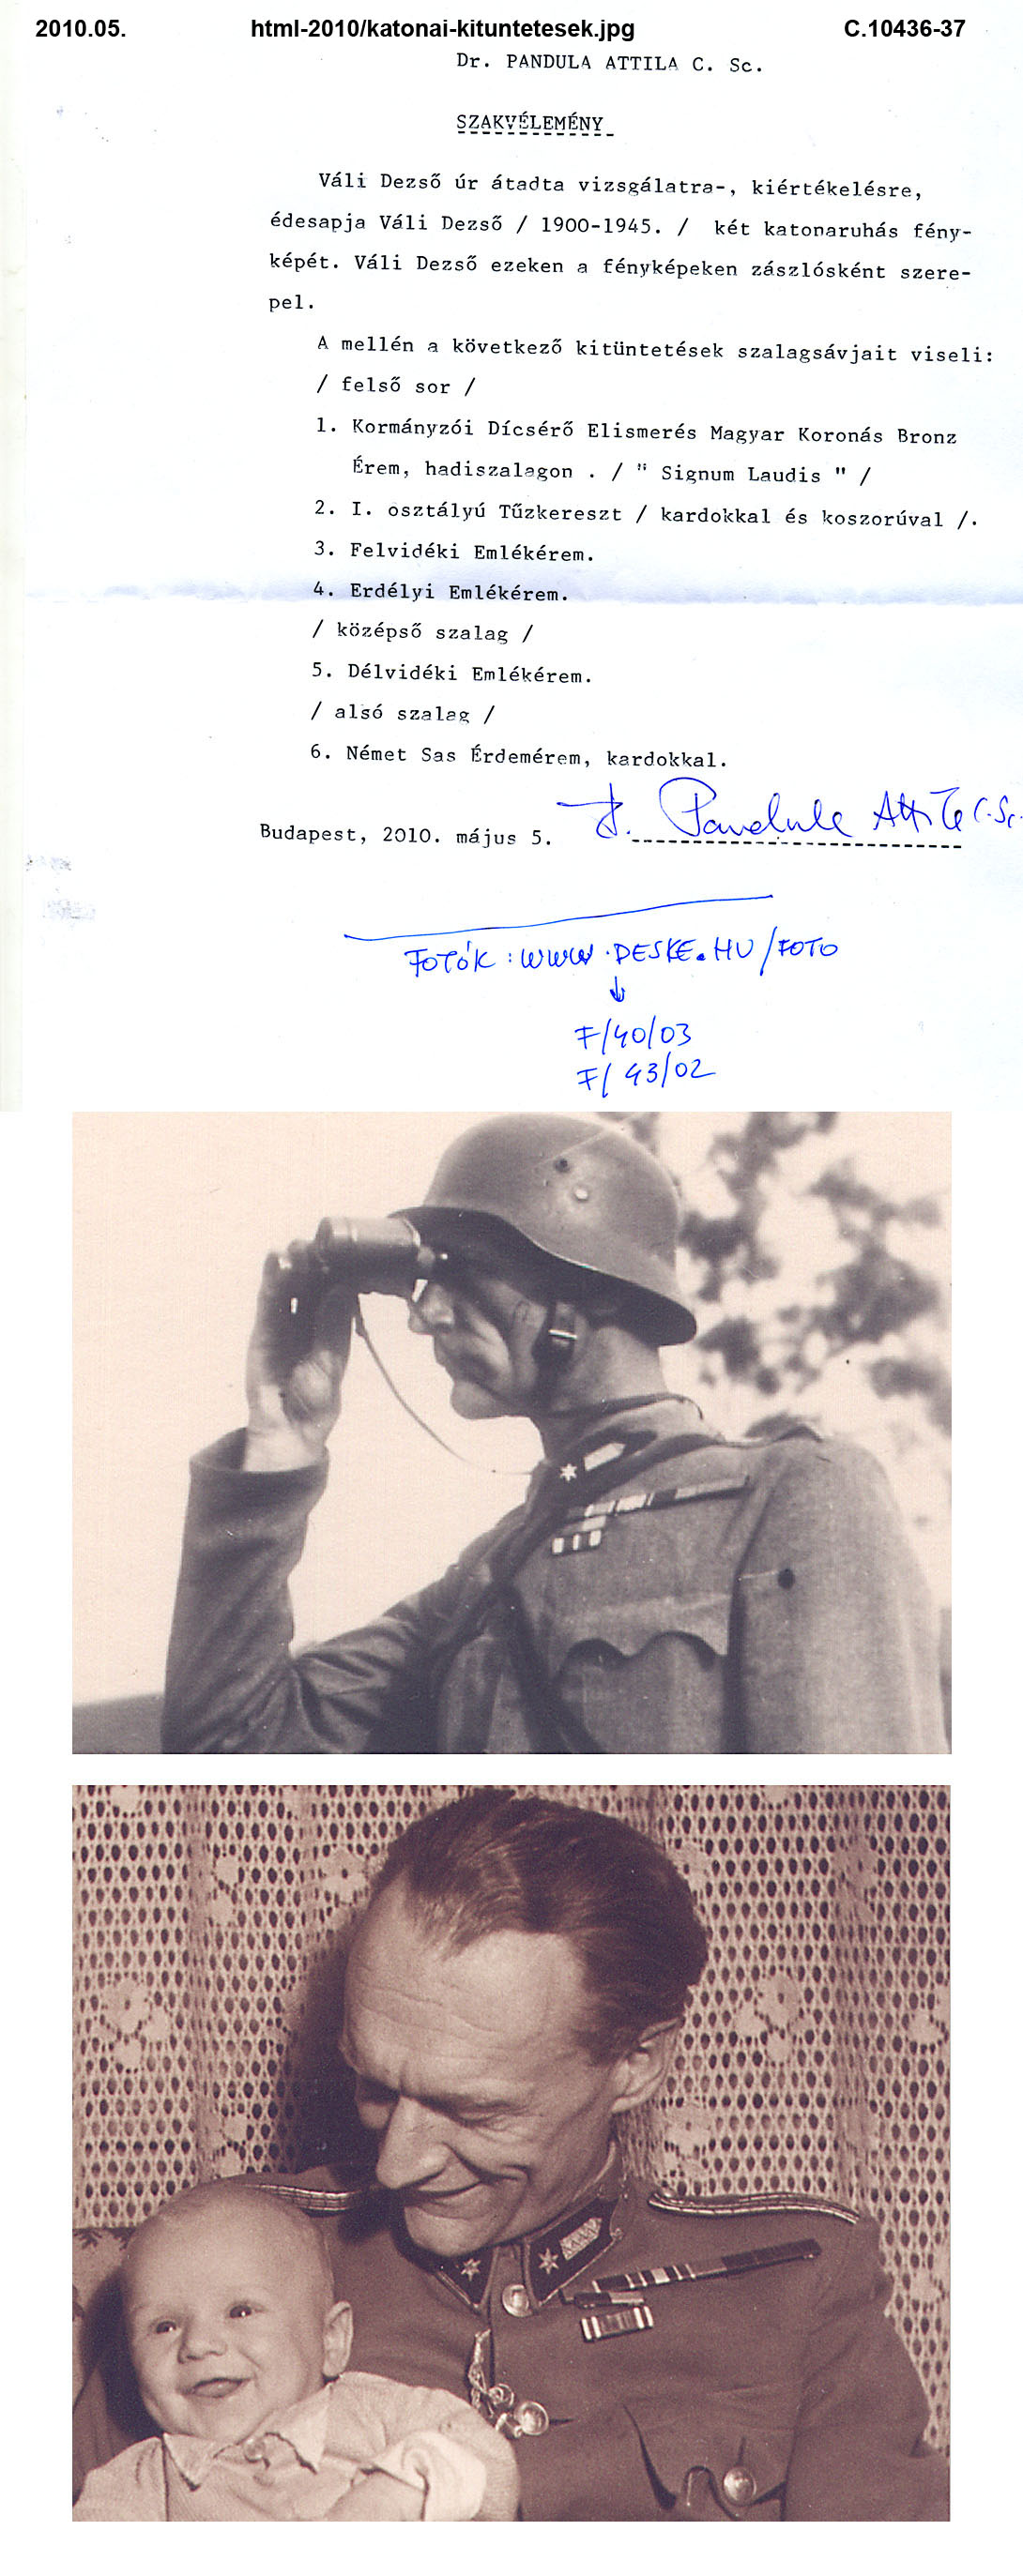 2010.05. html-2010/katonai-kituntetesek.jpg C.10436-37
Dr. PANDULA ATTILA C. Sc.
SZAKVÉLEMÉNY
Váli Dezső úr átadta vizsgálatra-, kiértékelésre,
édesapja Váli Dezső / 1900-1945. / két katonaruhás fény-
képét. Váli Dezső ezeken a fényképeken zászlósként szere-
pel.
A mellén a következő kitüntetések szalagsávjait viseli:
/ felső sor /
1. Kormányzói Dícsérő Elismerés Magyar Koronás Bronz
Érem, hadiszalagon . / " Signum Laudis " /
2. I. osztályú Tűzkereszt / kardokkal és koszorúval /.
3. Felvidéki Emlékérem.
4. Erdélyi Emlékérem.
/ középső szalag /
5. Délvidéki Emlékérem.
/ alsó szalag /
6. Német Sas Érdemérem, kardokkal.
Budapest, 2010. május 5. Dr. Pandula Attila C. Sc.
FOTÓK: WWW.DESKE.HU/FOTO
↓
F/40/03
F/43/02